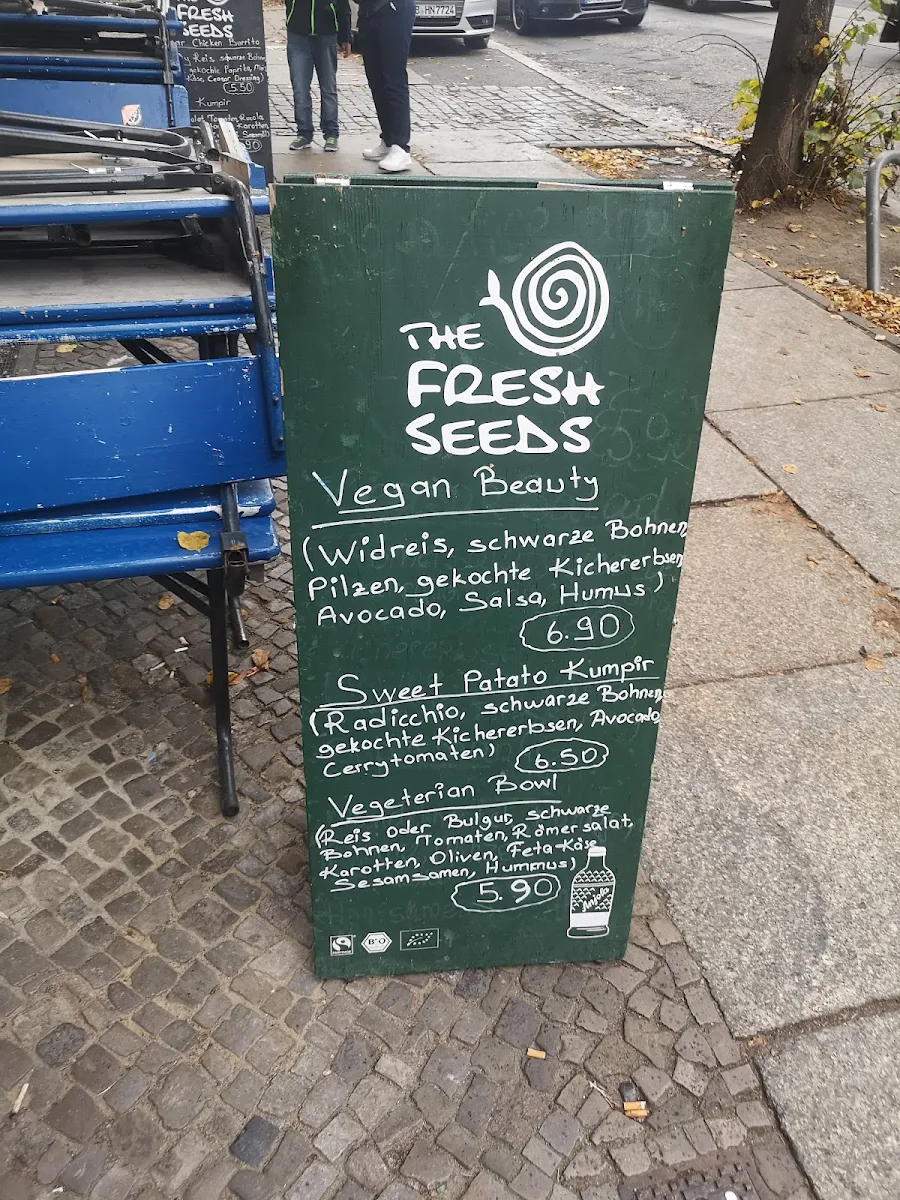 FRESH
SEEDS
Chicken Borrito
Reis, schwarze Bohn
gekochte Paprika, Mais
Käse, Ceasar Dressing)
5.50
Kumpir
Tomaten, Rucola
Karotten,
90
B HN7724
THE
FRESH
SEEDS
Vegan Beauty
(Widreis, schwarze Bohnen,
Pilzen, gekochte Kichererbsen
Avocado, Salsa, Humus)
6.90
Sweet Patato Kumpir
(Radicchio, schwarze Bohnen,
gekochte Kichererbsen, Avocado,
Cerrytomaten)
6.50
Vegeterian Bowl
(Reis oder Bulgur, schwarze
Bohnen, Tomaten, Römersalat,
Karotten, Oliven, Feta-Käse
Sesamsamen, Hummus)
5.90
Anjola
BIO